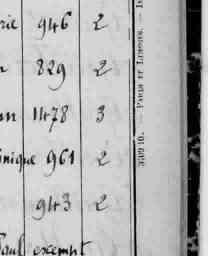 rie 946 2
n 829 2
an 1478 3
inique 961 2
943 2
Paul exempt
3309 10. — PARIS ET LIMOGES. — I